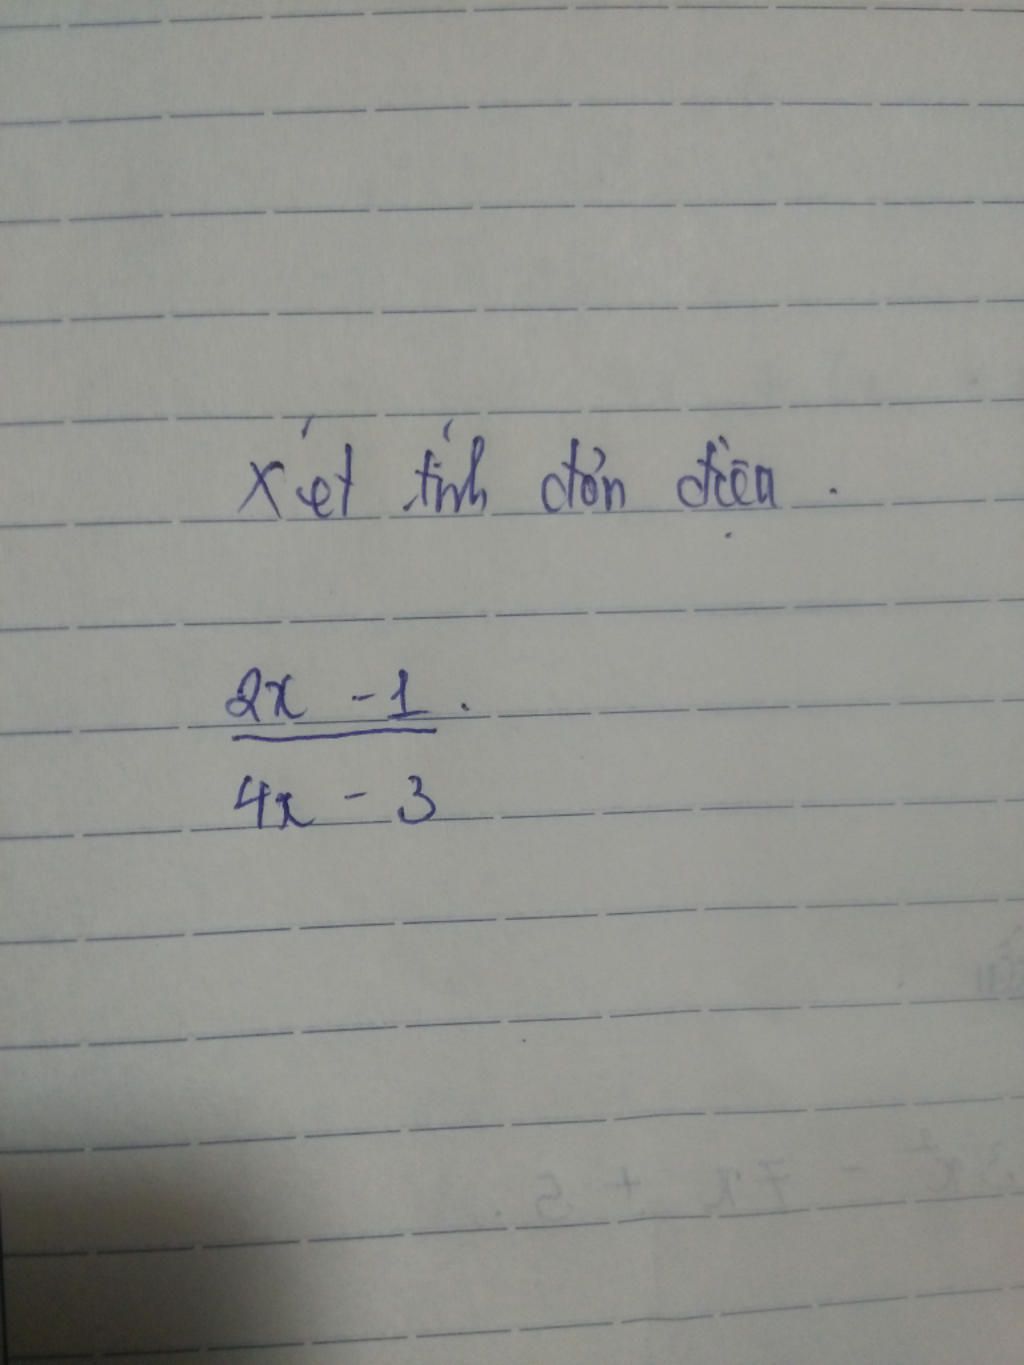 Xét tính đơn điệu.
2x - 1.
4x - 3